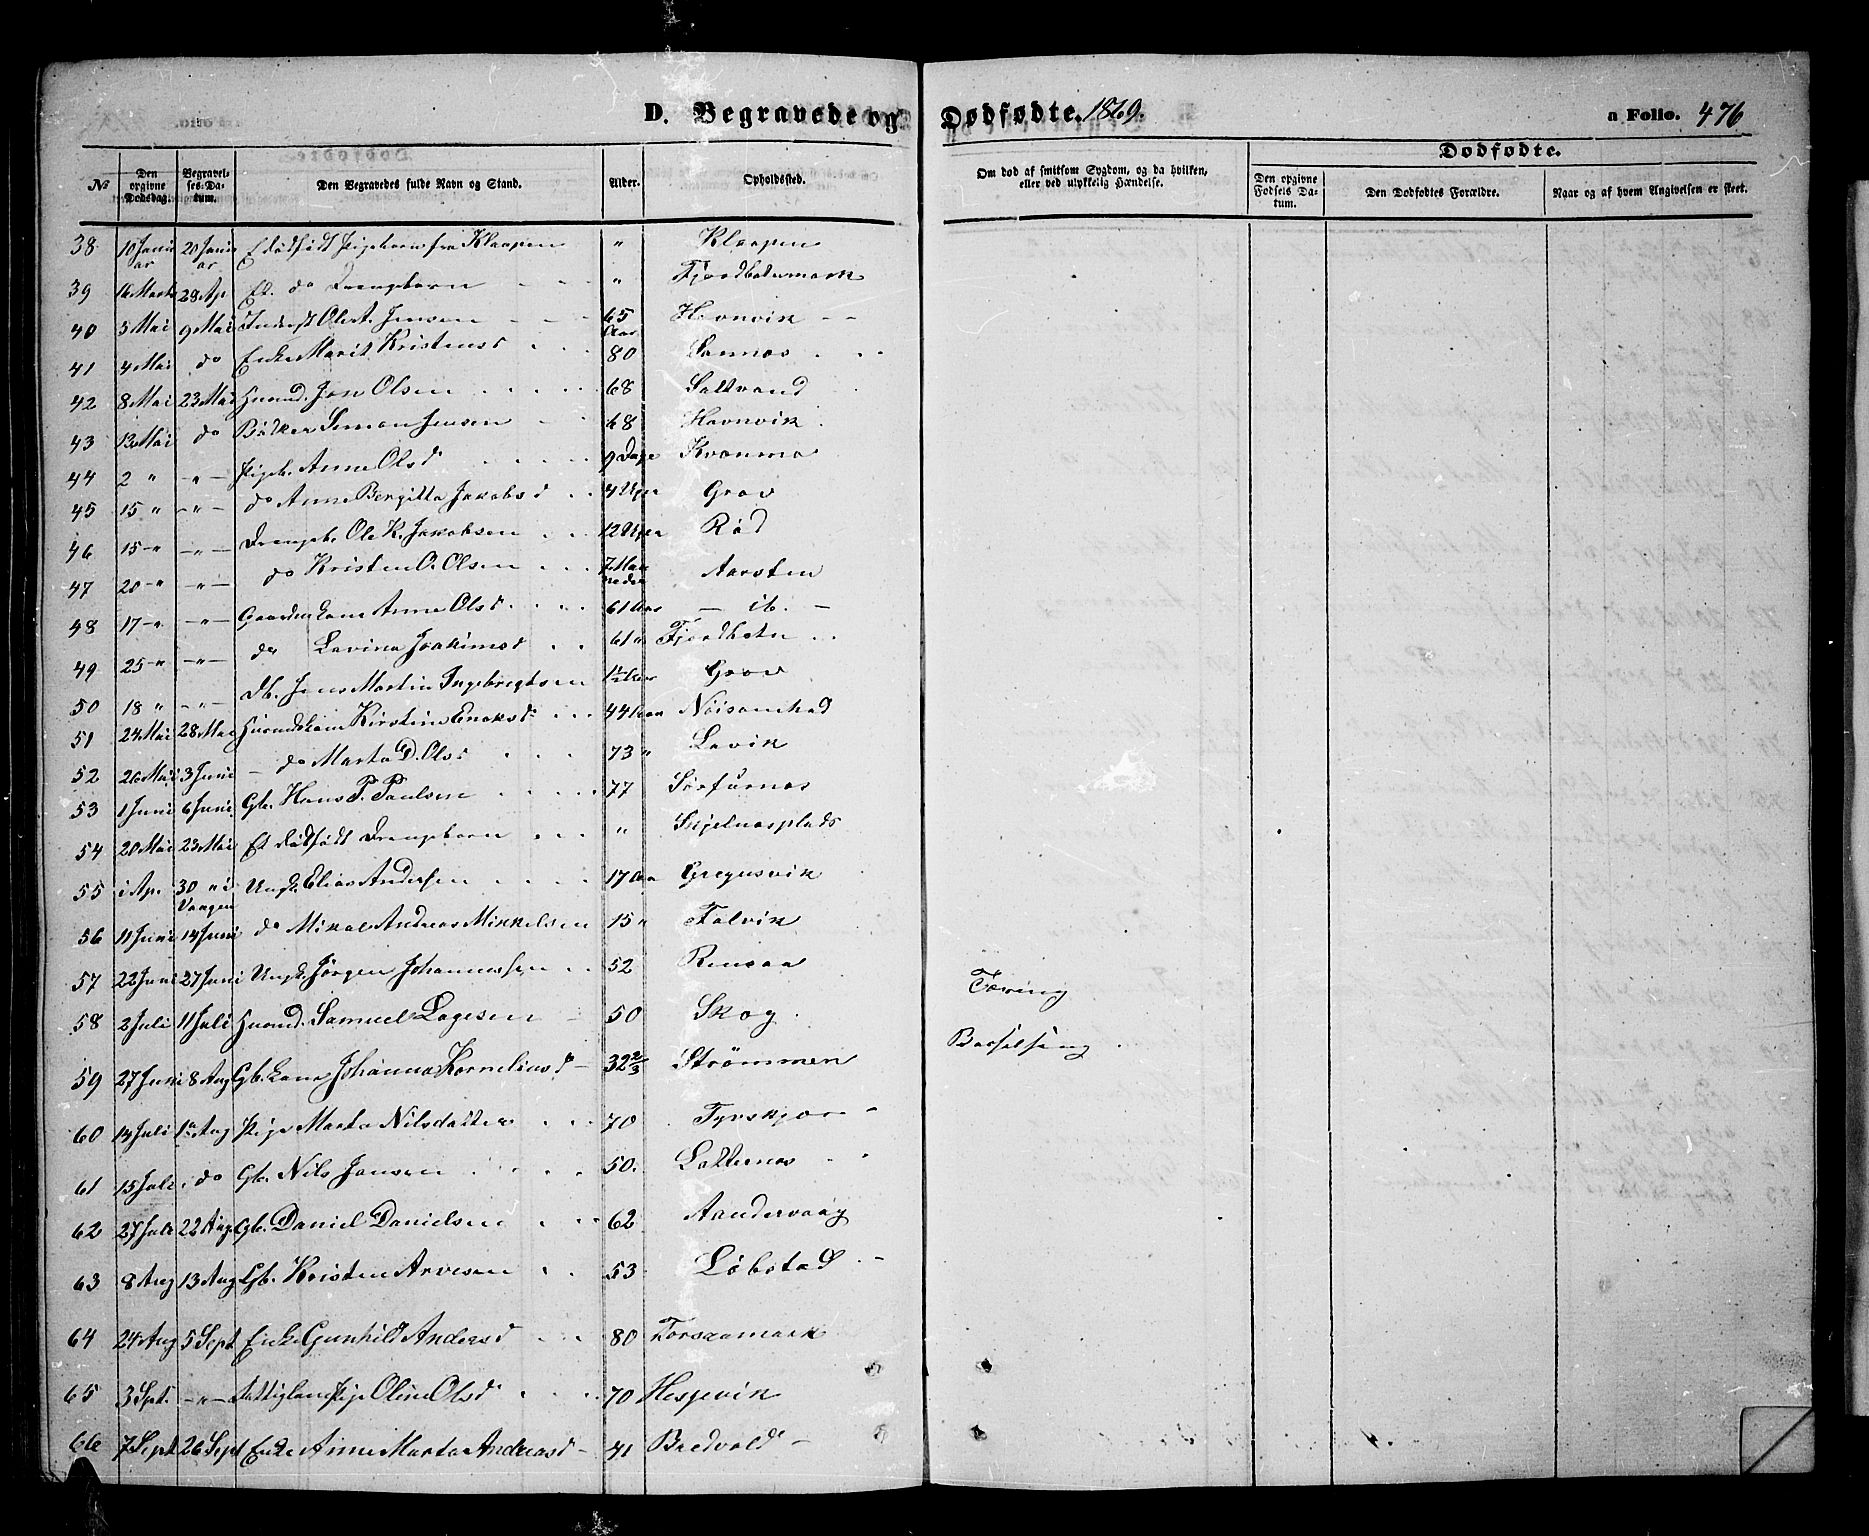 D. Begravede og Dødfødte. 1869. n Folio. 476
Dødfødte.
No Den opgivne Dødsdag. Begravelses-Datum. Den Begravedes fulde Navn og Stand. Alder. Opholdssted. Om død af smitsom Sygdom, og da hvilken, eller ved ulykkelig Hændelse. Den opgivne Fødsels Datum. Den Dødfødtes Forældre. Naar og af hvem Angivelsen er skeet.
38 10 Januar 20 Januar Et dødfødt Pigebarn fra Klaapen " Klaapen
39 16 Marts 28 Ap Et do Drengebarn " Fjordbotnmark
40 3 Mai 9 Mai Inderst Ole A. Jensen 65 Aar Havnvik
41 4 Mai do Enke Marit Kristensd 80 Sannes
42 8 Mai 23 Mai Huusmd. Jon Olsen 68 Saltvand
43 13 Mai do Bødker Simon Jensen 68 Havnvik
44 2 " -"- Pigeb. Anne Olsd 9 Dage Kvanmo
45 15 " -"- do Anne Bergitta Jakobsd 4 Uger Grov
46 15 -"- -"- Drengeb. Ole K. Jakobsen 12 Uger Rød
47 20 -"- -"- do Kristen O. Olsen 7 Maaneder Aarsten
48 17 -"- -"- Gaardm. kone Anne Olsd 61 Aar - ib. -
49 25 -"- -"- do Lavina Joakimsd 61 " Fjordbotn
50 18 " -"- Db. Jens Martin Ingebrigtsen 1 1/2 Aar Grov
51 24 Mai 28 Mai Huusmdskone Kirstine Enoksd 44 Aar
52 26 Mai 3 Juni - do Marta D. Olsd 73 " Lavik
53 1 Juni 6 Juni Gb. Hans P. Paulsen 77 Sørfurnes
54 20 Mai 23 Mai Et dødfødt Drengebarn "
55 i Ap. 30 " i Vaagen Ungk. Elias Andersen 17 Aar Gregusvik
56 11 Juni 14 Juni do Mikal Andreas Mikkelsen 15 " Falvik
57 22 Juni 27 Juni Ungk. Jørgen Johannessen 52 Rensaa
58 2 Juli 11 Juli Huusmd. Samuel Lagesen 50 Skog Tæring
59 27 Juni 8 Aug Gb. kone Johanna Korneliusd 32 2/3 Strømmen Barselseng
60 14 Juli 1 Aug Pige Marta Nilsdatter 70
61 15 Juli do Gb. Nils Jansen 50
62 27 Juli 22 Aug Gb. Daniel Danielsen 62 Aandervaag
63 8 Aug 13 Aug Gb. Kristen Arvesen 53 Løbstad
64 24 Aug 5 Sept Enke Gunhild Andersd 80
65 3 Sept. -"- Fattiglem Pige Oline Olsd 70 Hesjevik
66 7 Sept 26 Sept Enke Anne Marta Andreasd 41 Bredvold